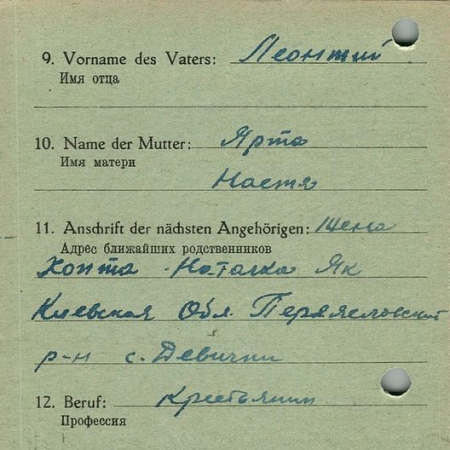 9. Vorname des Vaters: Леонтий
Имя отца
10. Name der Mutter: Ярта
Имя матери
Настя
11. Anschrift der nächsten Angehörigen: жена
Адрес ближайших родственников
Хопта Наталка Як
Киевская Обл. Переяеловский
р-н с. Девички
12. Beruf: Крестьянин
Профессия